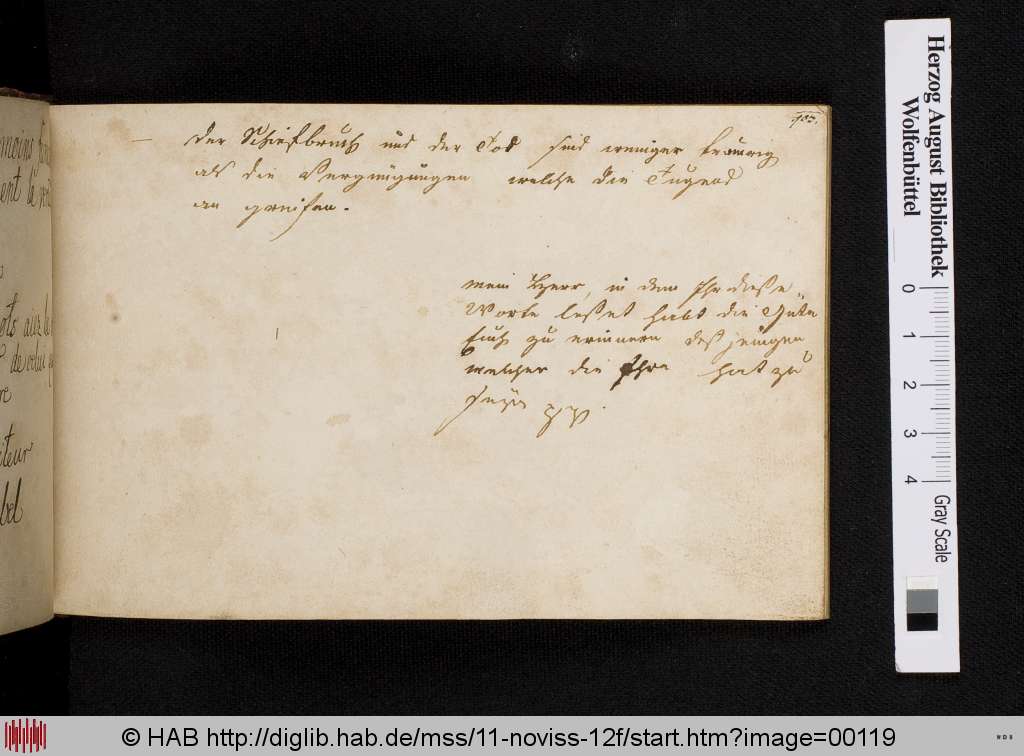 103.
Der Schiefbruch und der Tod sind weniger traurig
als die Vergnügungen welche die Tugend
an greifen.
mein Herr, in dem Ihr diese
Worte leßet habt die Güte
Euch zu erinnern deß jenigen
welcher die Ehre hat zu
seyn
moins
ent
ots aux
de celui
re
iteur
bel
Herzog August Bibliothek
Wolfenbüttel
0
1
2
3
4
Gray Scale
© HAB http://diglib.hab.de/mss/11-noviss-12f/start.htm?image=00119